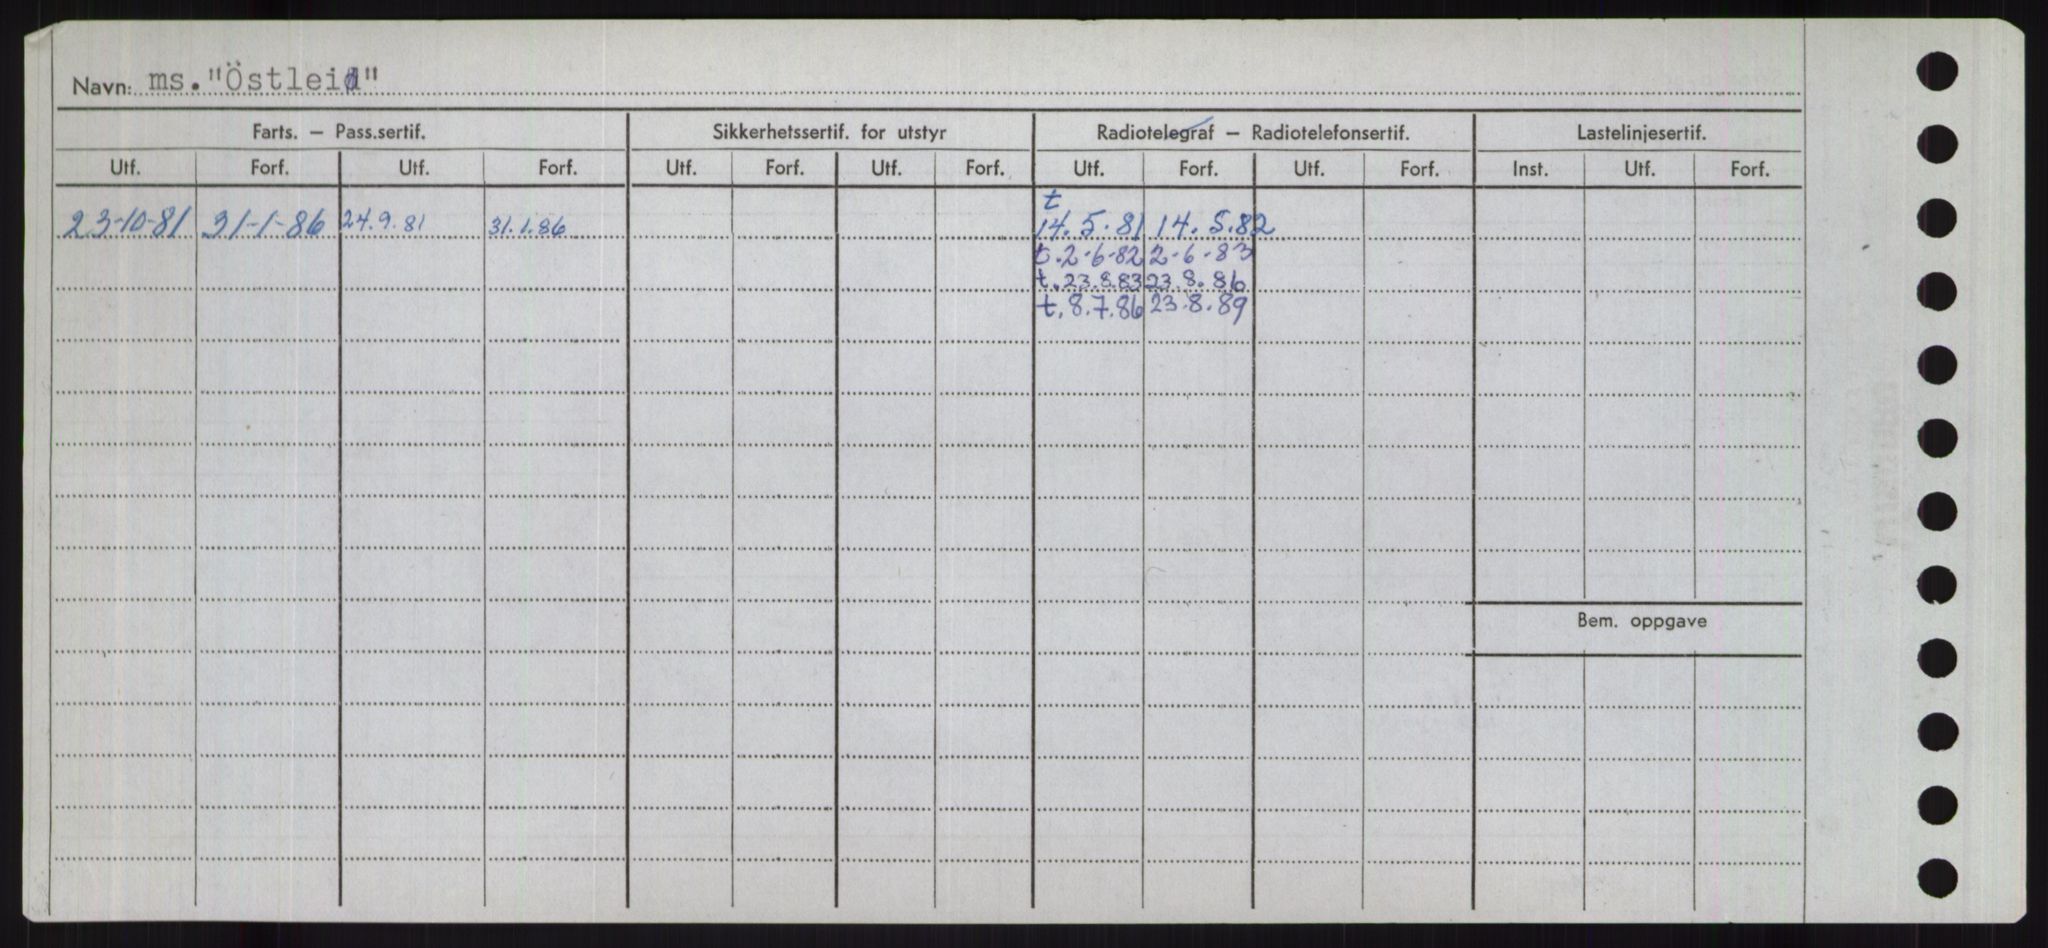 Navn: ms. "Östleid"
Farts. – Pass.sertif. Sikkerhetssertif. for utstyr Radiotelegraf – Radiotelefonsertif. Lastelinjesertif.
Utf. Forf. Utf. Forf. Utf. Forf. Utf. Forf. Utf. Forf. Utf. Forf. Inst. Utf. Forf.
t
23-10-81 31-1-86 24.9.81 31.1.86 14.5.81 14.5.82
t.2-6-82 2-6-83
t.23.8.83 23.8.86
t.8.7.86 23.8.89
Bem. oppgave